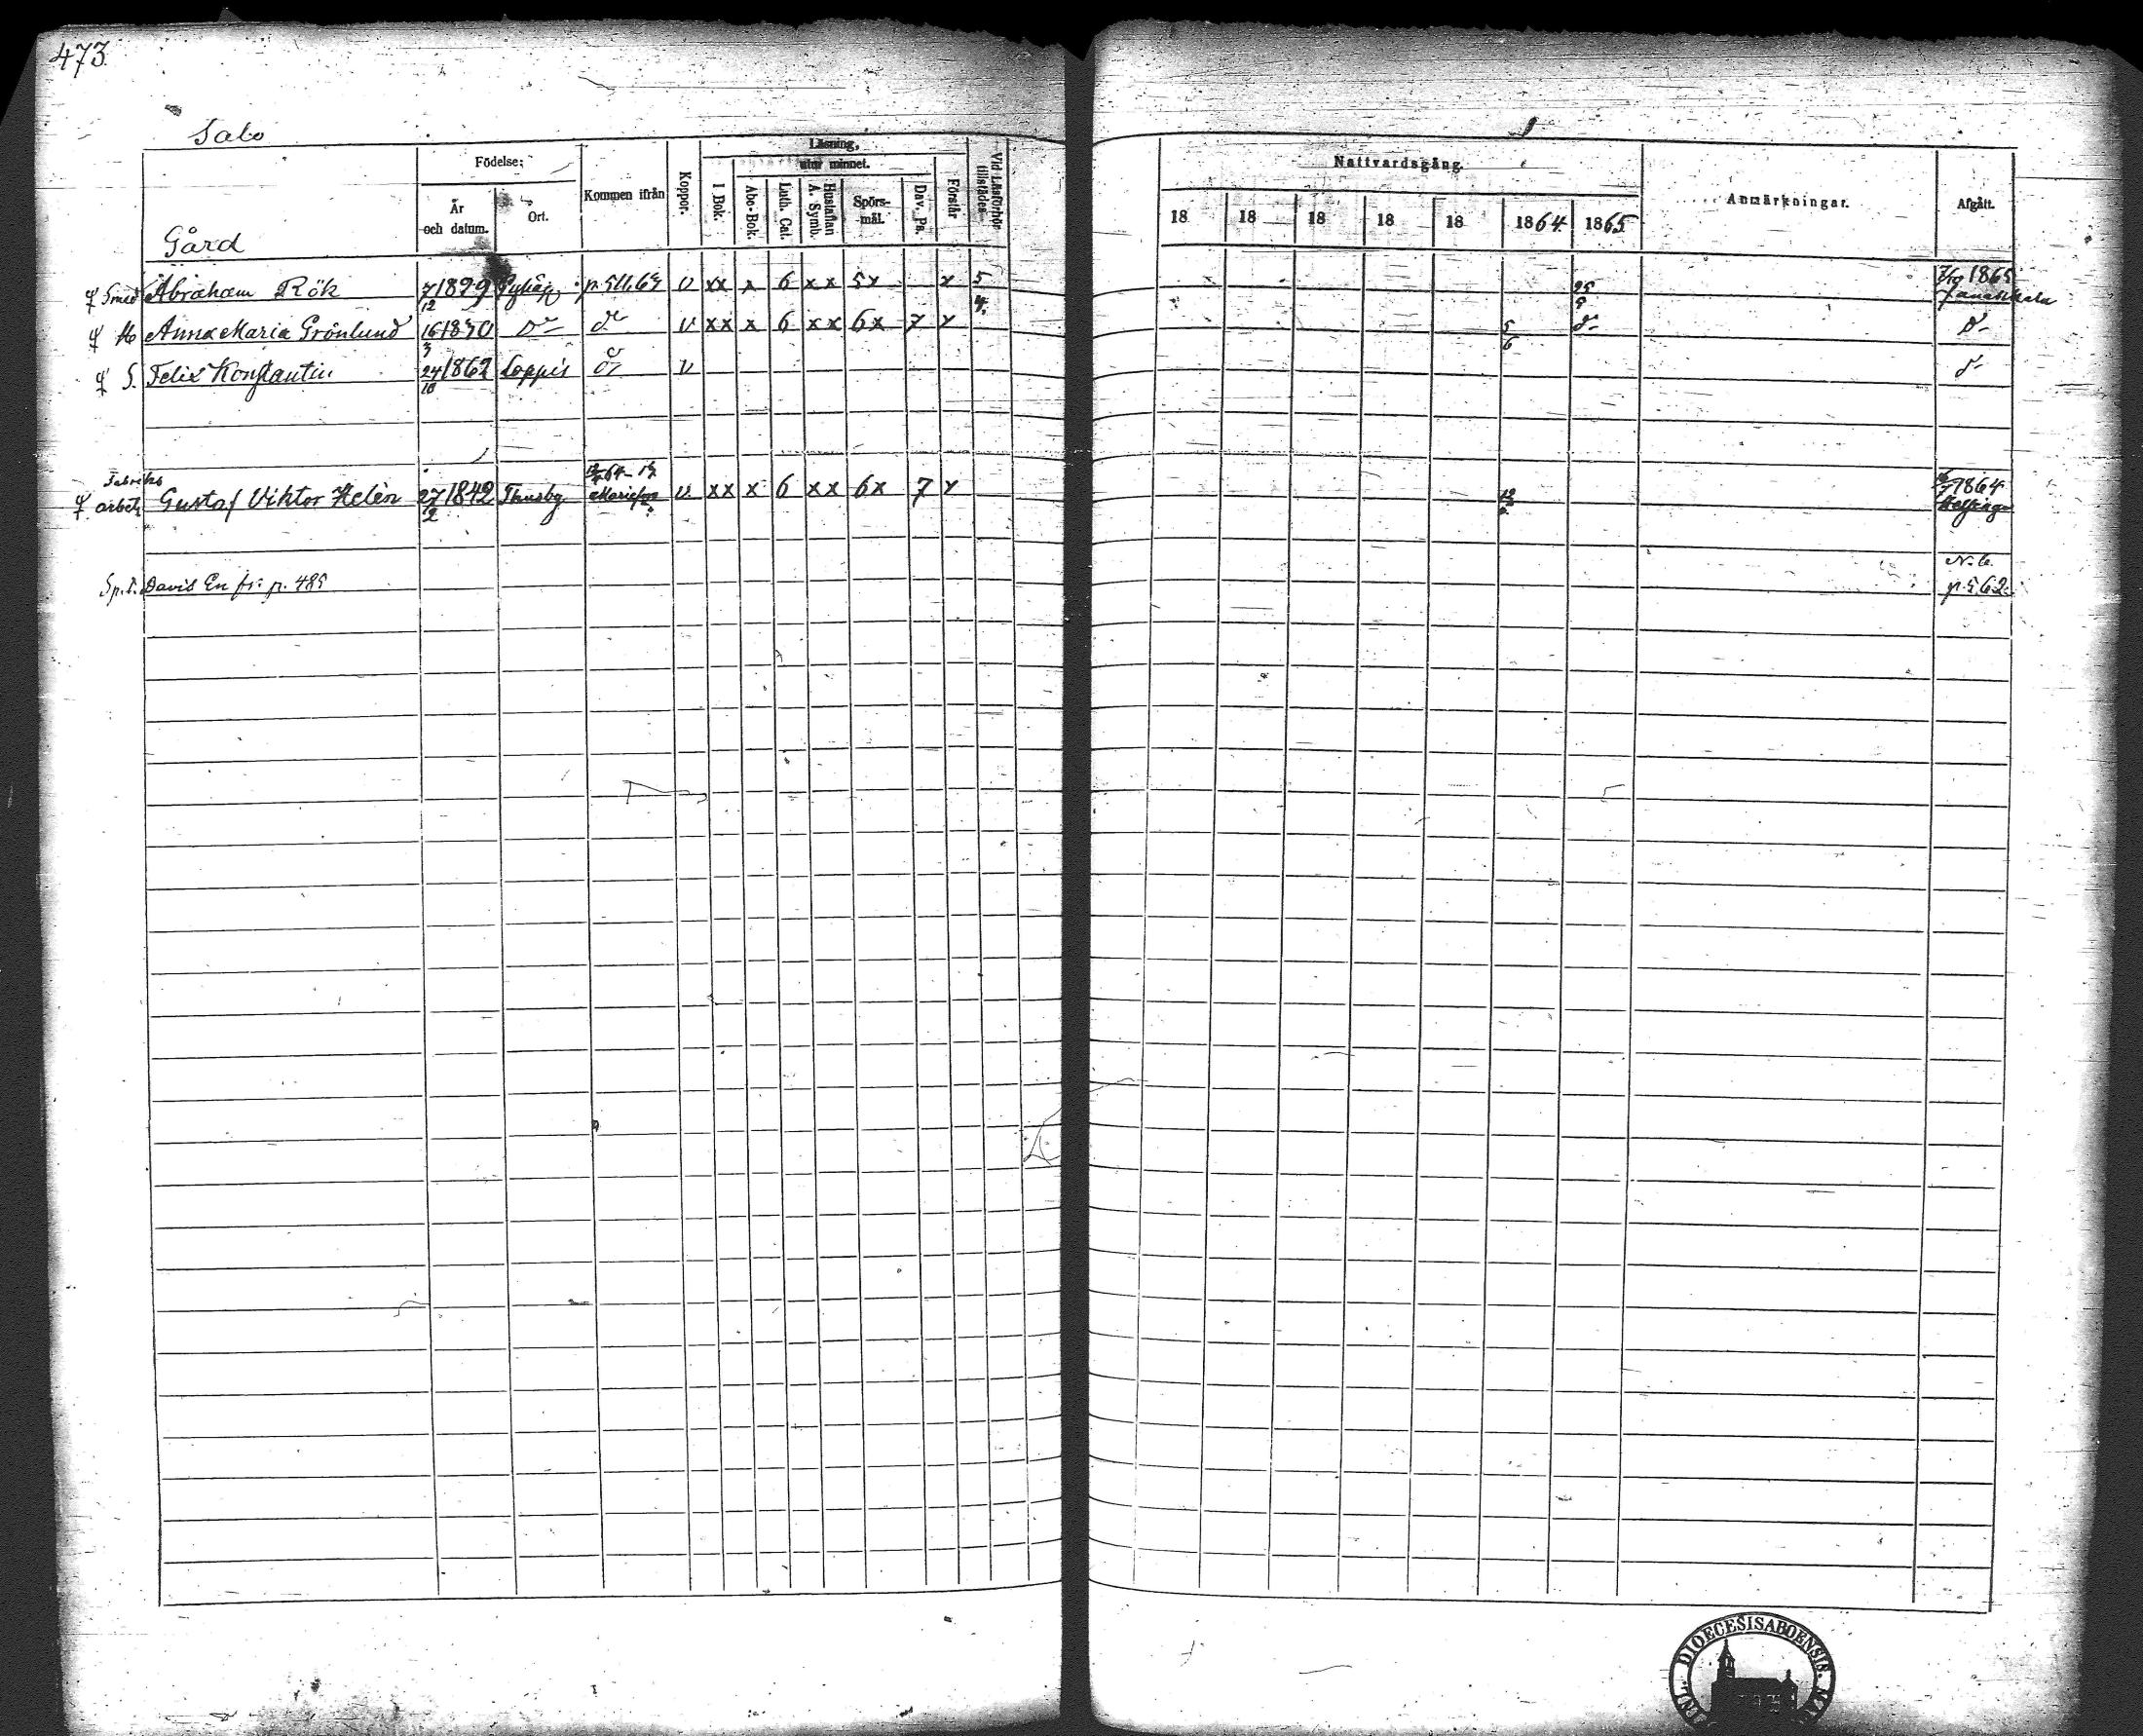 473
Salo
Gård
Födelse;
År och datum.
Ort.
Kommen ifrån
Koppor.
Läsning,
utur minnet.
I Bok.
Abc-Bok.
Luth. Cat.
Hustaflan A. Symb.
Spörs-mål.
Dav. Ps.
Förstår
Vid Läsförhör tillstädes
Nattvardsgång.
18 18 18 18 18 1864 1865
Anmärkningar.
Afgått.
Smed Abraham Rök 7/12 1829 p. 511,64 v xx x 6 xx 5x x 5 4. 25 9 1865
H Anna Maria Grönlund 16/3 1830 Do do v xx x 6 xx 6x 7 x 5/6 do Do
S. Felix Konstantin 24/10 1862 Loppis do v do
Fabriks
arbet. Gustaf Viktor Helèn 27/2 1842 Tenuby v. xx x 6 xx 6x 7 x 1864
N.b.
Sp. S. David En fr: p. 485 p. 562.
DIOECESIS ABOENSIS